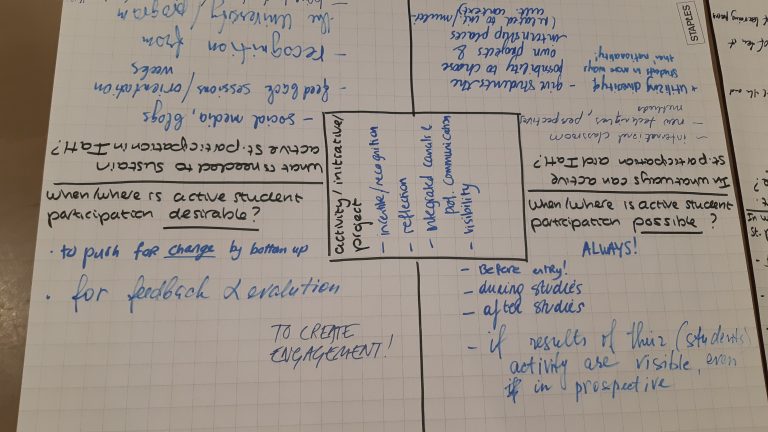 When/where is active student
participation desirable?
· to push for change by bottom up
· for feedback & evalution
TO CREATE
ENGAGEMENT!
When/where is active student
participation possible?
ALWAYS!
- Before entry!
- during studies
- after studies
- if results of their (students')
activity are visible, even
if in prospective
activity/initiative/
project
- incentive/recognition
- reflection
- integrated
pot. communication
- visibility
What is needed to sustain
active st. participation in IaH?
- social media, blogs
- feedback sessions/orientation
weeks
- recognition from
the University/program
In what ways can active
st. participation aid IaH?
- internatinal classroom
- new techniques, perspectives,
methods
+ utilizing diversity of
students in more ways
than nationality!
- give students the
possibility to choose
own projects &
internship places
(related to int/multi
cult. context)
STAPLES